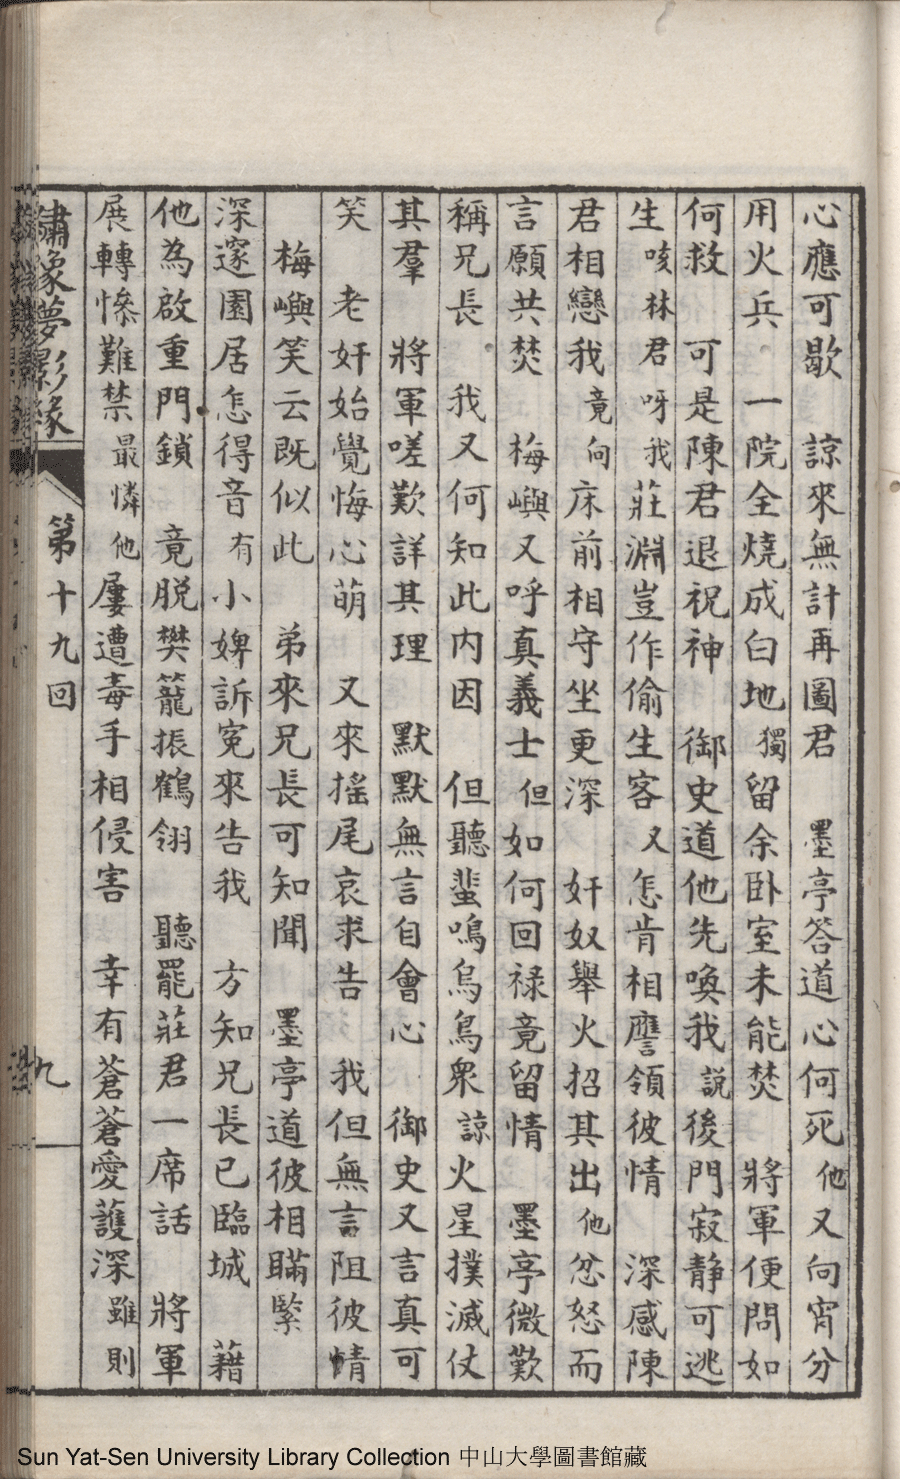 心應可歇　諒來無計再圖君　墨亭答道心何死他又向宵分
用火兵　一院全燒成白地獨留余卧室未能焚　將軍便問如
何救　可是陳君退祝神　御史道他先喚我說後門寂靜可逃
生咳林君呀我莊淵豈作偷生客又怎肯相譍領彼情　深感陳
君相戀我竟向床前相守坐更深　奸奴舉火招其出他忿怒而
言願共焚　梅嶼又呼真義士但如何回祿竟留情　墨亭微歎
稱兄長　我又何知此内因　但聽蜚鳴烏鳥眾諒火星撲滅仗
其羣　將軍嗟歎詳其理　默默無言自會心　御史又言真可
笑　老奸始覺悔心萌　又來搖尾哀求告　我但無言阻彼情
梅嶼笑云既似此　弟來兄長可知聞　墨亭道彼相瞞緊
深邃園居怎得音有小婢訴冤來告我　方知兄長已臨城　藉
他為啟重門鎖　竟脫樊籠振鶴翎　聽罷莊君一席話　將軍
展轉慘難禁最憐他屢遭毒手相侵害　幸有蒼蒼愛護深雖則
繡像夢影緣　第十九回　九
Sun Yat-Sen University Library Collection 中山大學圖書館藏